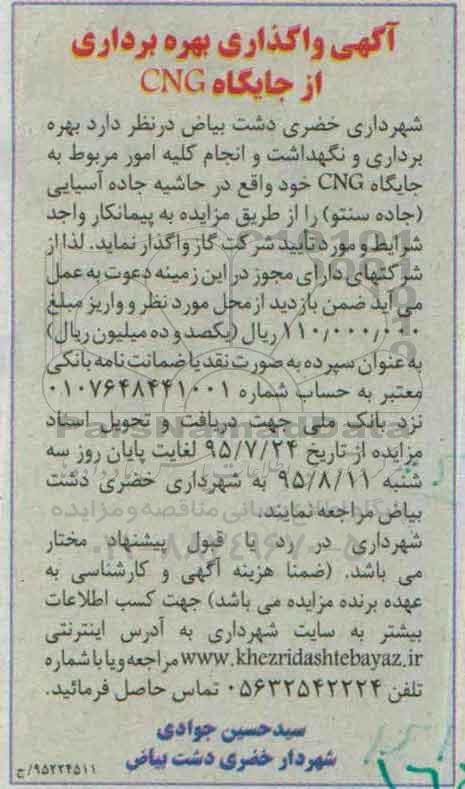 آگهی واگذاری بهره برداری
از جایگاه CNG
شهرداری خضری دشت بیاض درنظر دارد بهره
برداری و نگهداشت و انجام کلیه امور مربوط به
جایگاه CNG خود واقع در حاشیه جاده آسیایی
(جاده سنتو) را از طریق مزایده به پیمانکار واجد
شرایط و مورد تایید شرکت گاز واگذار نماید. لذا از
شرکتهای دارای مجوز در این زمینه دعوت به عمل
می آید ضمن بازدید از محل مورد نظر و واریز مبلغ
۱۱۰/۰۰۰/۰۰۰ ریال (یکصد و ده میلیون ریال)
به عنوان سپرده به صورت نقد یا ضمانت نامه بانکی
معتبر به حساب شماره ۰۱۰۷۶۴۸۴۴۱۰۰۱
نزد بانک ملی جهت دریافت و تحویل اسناد
مزایده از تاریخ ۹۵/۷/۲۴ لغایت پایان روز سه
شنبه ۹۵/۸/۱۱ به شهرداری خضری دشت
بیاض مراجعه نمایند.
شهرداری در رد یا قبول پیشنهاد مختار
می باشد. (ضمنا هزینه آگهی و کارشناسی به
عهده برنده مزایده می باشد) جهت کسب اطلاعات
بیشتر به سایت شهرداری به آدرس اینترنتی
www.khezridashtebayaz.ir مراجعه و یا با شماره
تلفن ۰۵۶۳۲۵۴۲۲۲۴ تماس حاصل فرمائید.
سیدحسین جوادی
شهردار خضری دشت بیاض
۹۵۲۲۴۵۱۱/ج